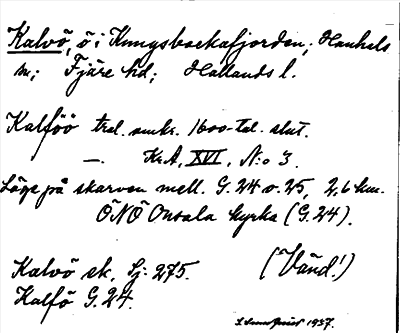 Kalvö, ö i Kungsbackafjorden, Hanhals
sn; Fjäre hd; Hallands l.
Kalföö trol. omkr. 1600-tal. slut.
— KrA, XVI, N:o 3.
Läge på skarven mell. G. 24 o. 25, 2,6 km.
ÖNÖ Onsala kyrka (G. 24).
Kalvö sk. Sj: 275. (Vänd!)
Kalfö G. 24.
1937.